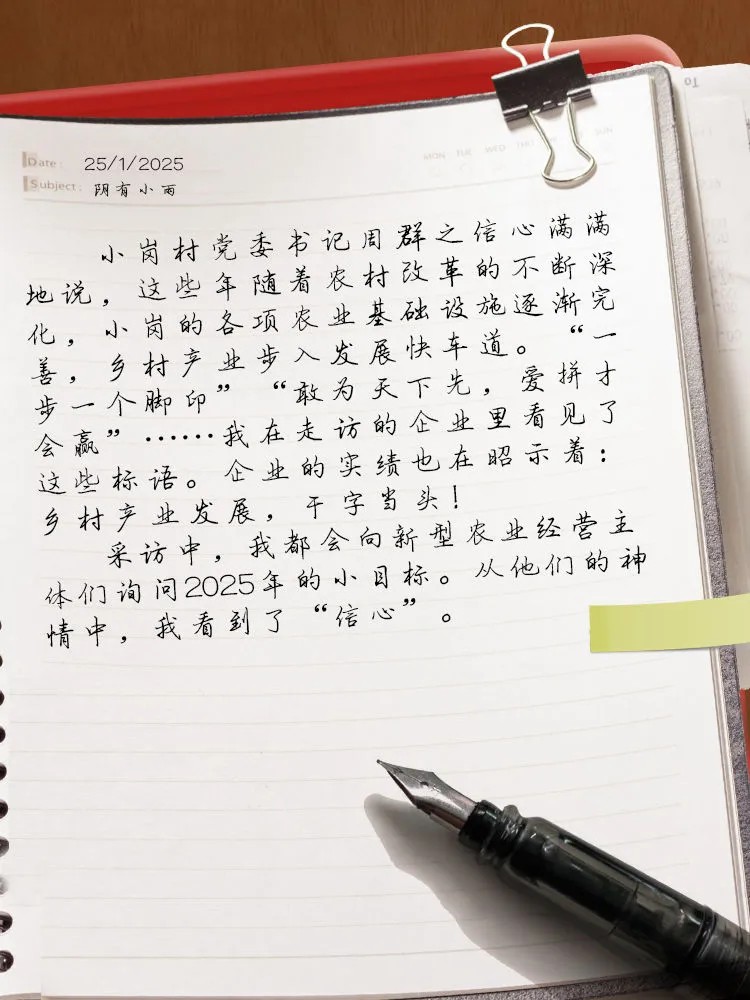 To
Date: 25/1/2025
MON TUE WED THU SUN
Subject: 阴有小雨
小岗村党委书记周群之信心满满
地说，这些年随着农村改革的不断深
化，小岗的各项农业基础设施逐渐完
善，乡村产业步入发展快车道。“一
步一个脚印”“敢为天下先，爱拼才
会赢”……我在走访的企业里看见了
这些标语。企业的实绩也在昭示着：
乡村产业发展，干字当头！
采访中，我都会向新型农业经营主
体们询问2025年的小目标。从他们的神
情中，我看到了“信心”。